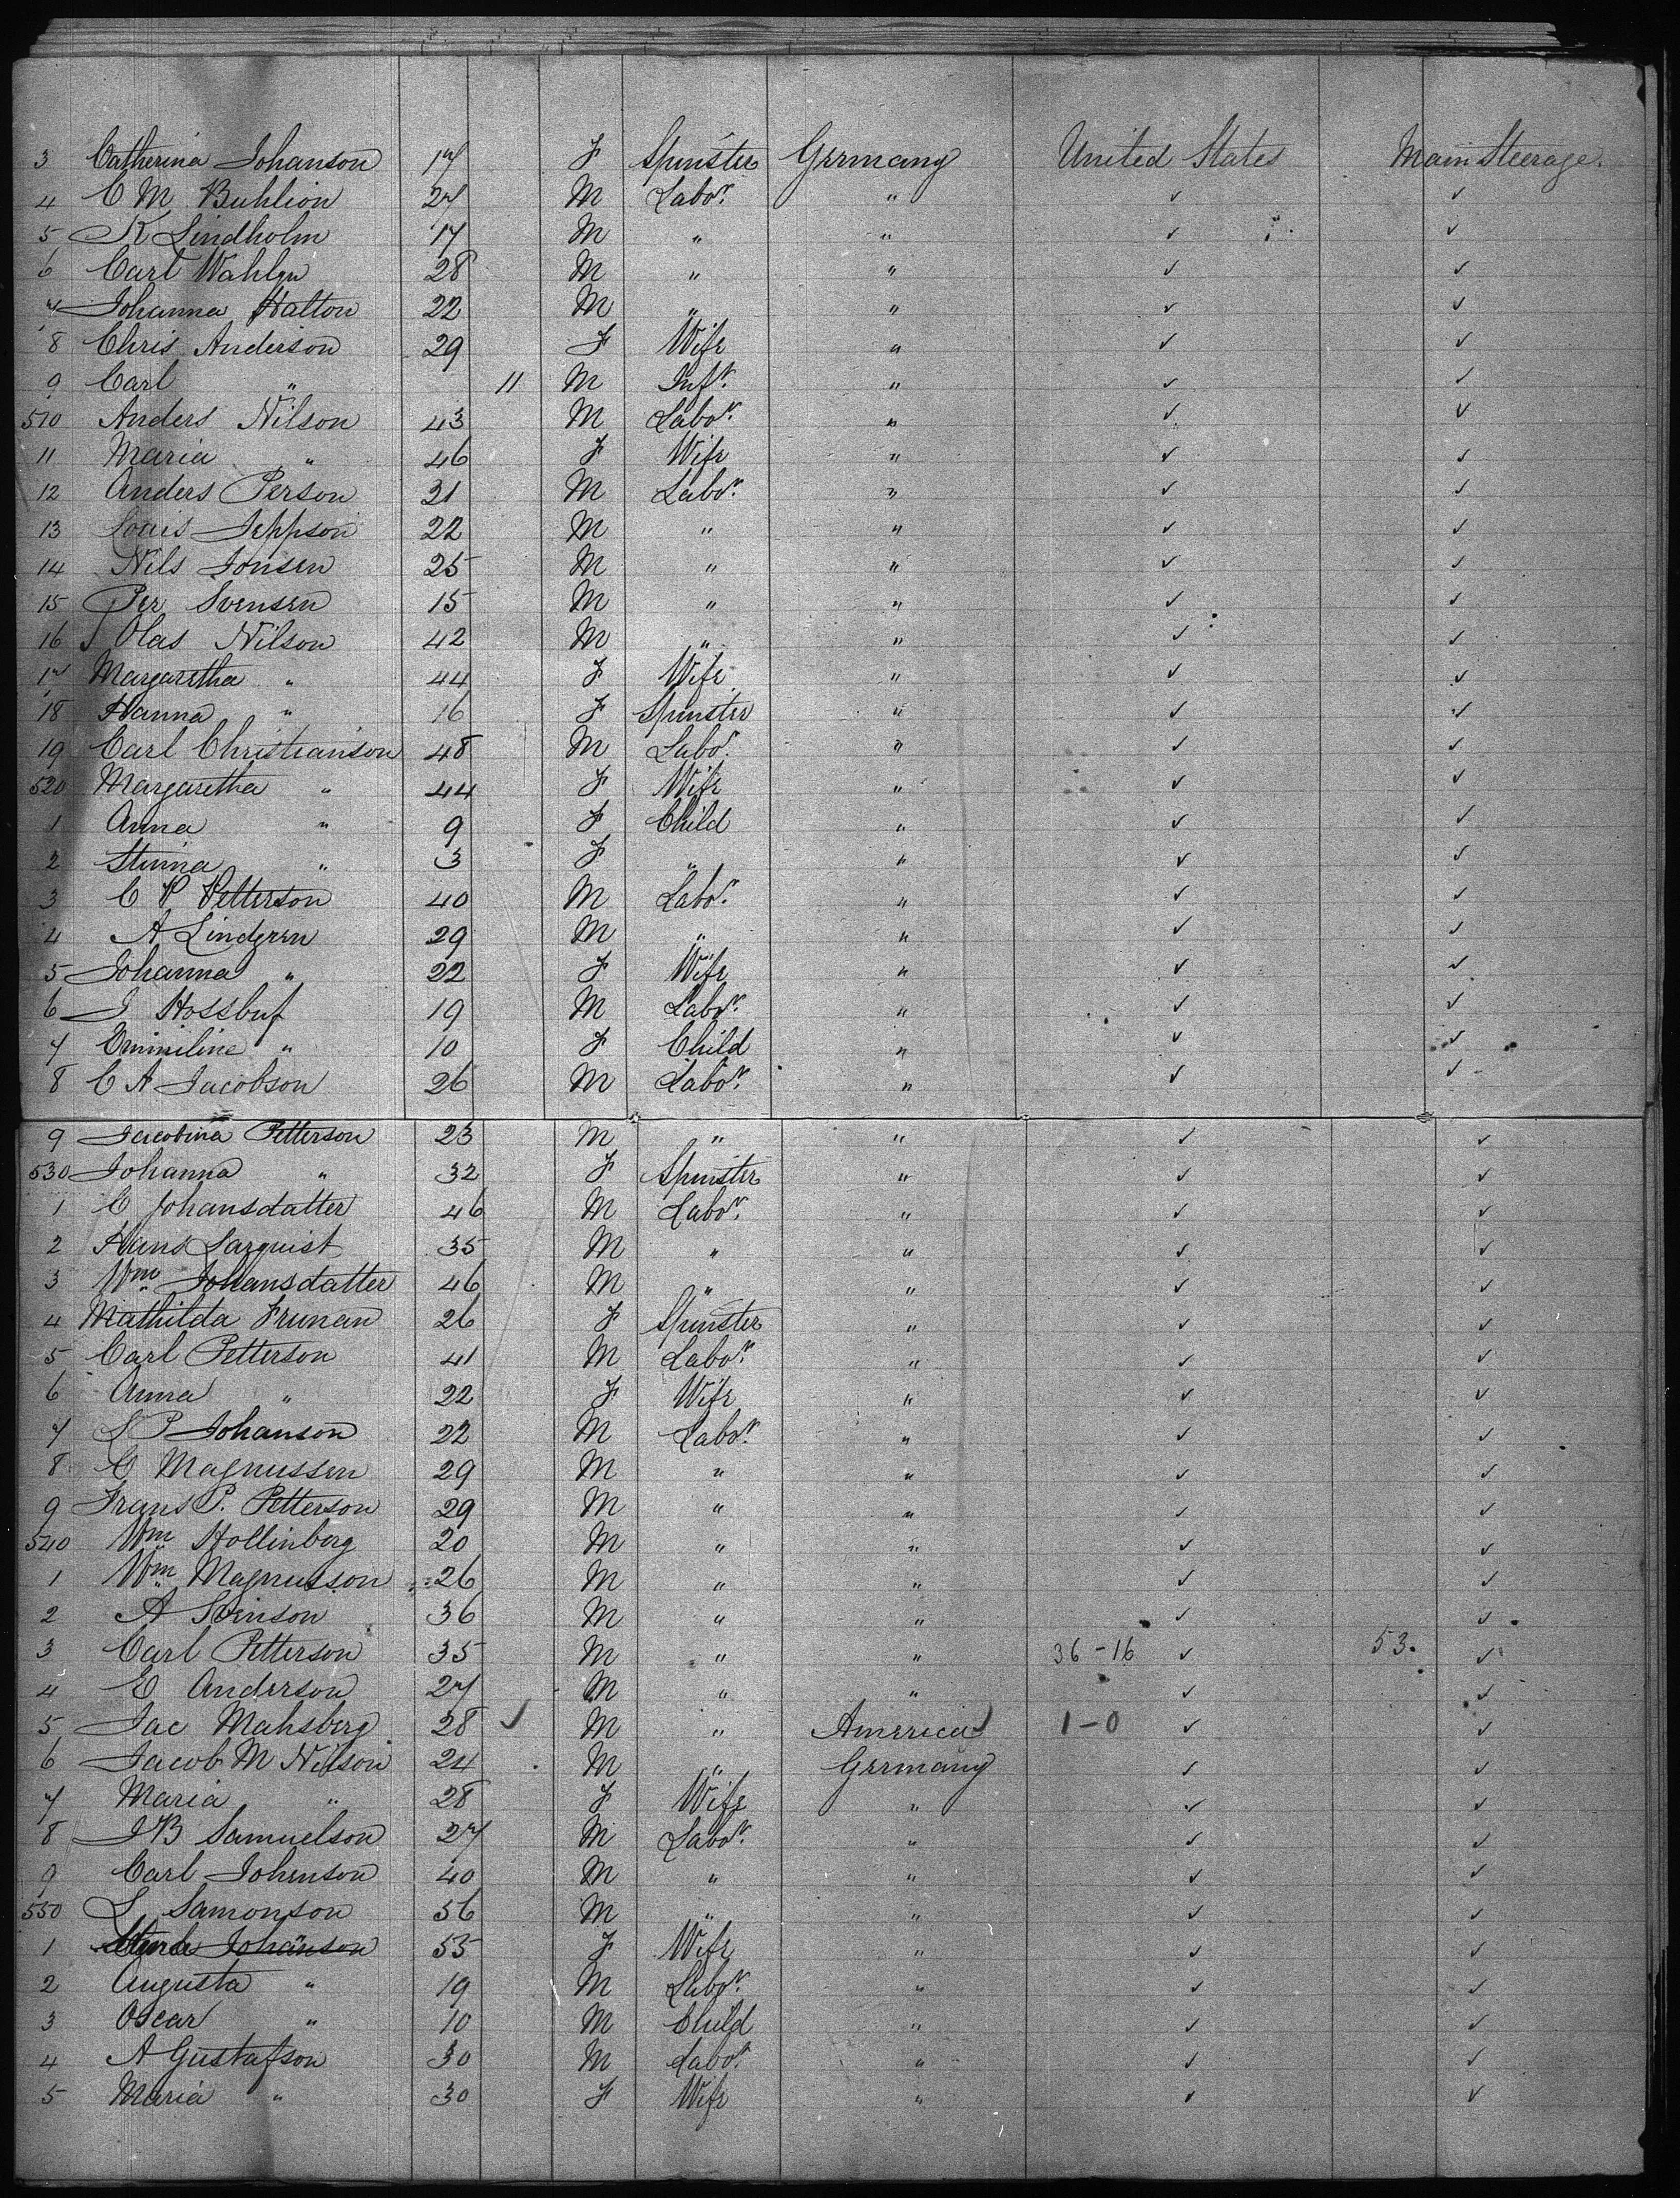 3 Catherina Johanson 17 F Spinster Germany United States Main Steerage.
4 C M Buhlion 27 M Labor. " ✓ ✓
5 K Lindholm 17 M " " ✓ ✓
6 Carl Wahlgn 28 M " " ✓ ✓
7 Johanna Halton 22 M " " ✓ ✓
8 Chris Anderson 29 F Wife " ✓ ✓
9 Carl " 11 M Inft. " ✓ ✓
510 Anders Nilson 43 M Labor. " ✓ ✓
11 Maria " 46 F Wife " ✓ ✓
12 Anders Person 21 M Labor. " ✓ ✓
13 Louis Jeppson 22 M " " ✓ ✓
14 Nils Jonsen 25 M " " ✓ ✓
15 Per Svensen 15 M " " ✓ ✓
16 Olas Nilson 42 M " " ✓ ✓
17 Margaretha " 44 F Wife " ✓ ✓
18 Hanna " 16 F Spinster " ✓ ✓
19 Carl Christianson 48 M Labor. " ✓ ✓
520 Margaretha " 44 F Wife " ✓ ✓
1 Anna " 9 F Child " ✓ ✓
2 Stinna " 3 F " " ✓ ✓
3 C P Petterson 40 M Labor. " ✓ ✓
4 A Lindgren 29 M " " ✓ ✓
5 Johanna " 22 F Wife " ✓ ✓
6 J Hossbuf 19 M Labor. " ✓ ✓
7 Emmiline " 10 F Child " ✓ ✓
8 C A Jacobson 26 M Labor. " ✓ ✓
9 Jacobina Petterson 23 M " " ✓ ✓
530 Johanna " 32 F Spinster " ✓ ✓
1 C Johansdatter 46 M Labor. " ✓ ✓
2 Hans Larquist 35 M " " ✓ ✓
3 Wm Johansdatter 46 M " " ✓ ✓
4 Mathilda Fruman 26 F Spinster " ✓ ✓
5 Carl Petterson 41 M Labor. " ✓ ✓
6 Anna " 22 F Wife " ✓ ✓
7 L P Johanson 22 M Labor. " ✓ ✓
8 C Magnussen 29 M " " ✓ ✓
9 Frans P. Petterson 29 M " " ✓ ✓
540 Wm Hollinberg 20 M " " ✓ ✓
1 Wm Magnusson 26 M " " ✓ ✓
2 A Svinson 36 M " " ✓ ✓
3 Carl Petterson 35 M " " 36-16 ✓ 53. ✓
4 E Anderson 27 M " " ✓ ✓
5 Jac Mahsberg 28 ✓ M " America ✓ 1-0 ✓ ✓
6 Jacob M Nilson 24 M " Germany ✓ ✓
7 Maria " 28 F Wife " ✓ ✓
8 J B Samuelson 27 M Labor. " ✓ ✓
9 Carl Johenson 40 M " " ✓ ✓
550 L Samonson 56 M " " ✓ ✓
1 Johanson 55 F Wife " ✓ ✓
2 Augusta " 19 M Labor. " ✓ ✓
3 Oscar " 10 M Child " ✓ ✓
4 A Gustafson 30 M Labor. " ✓ ✓
5 Maria " 30 F Wife " ✓ ✓